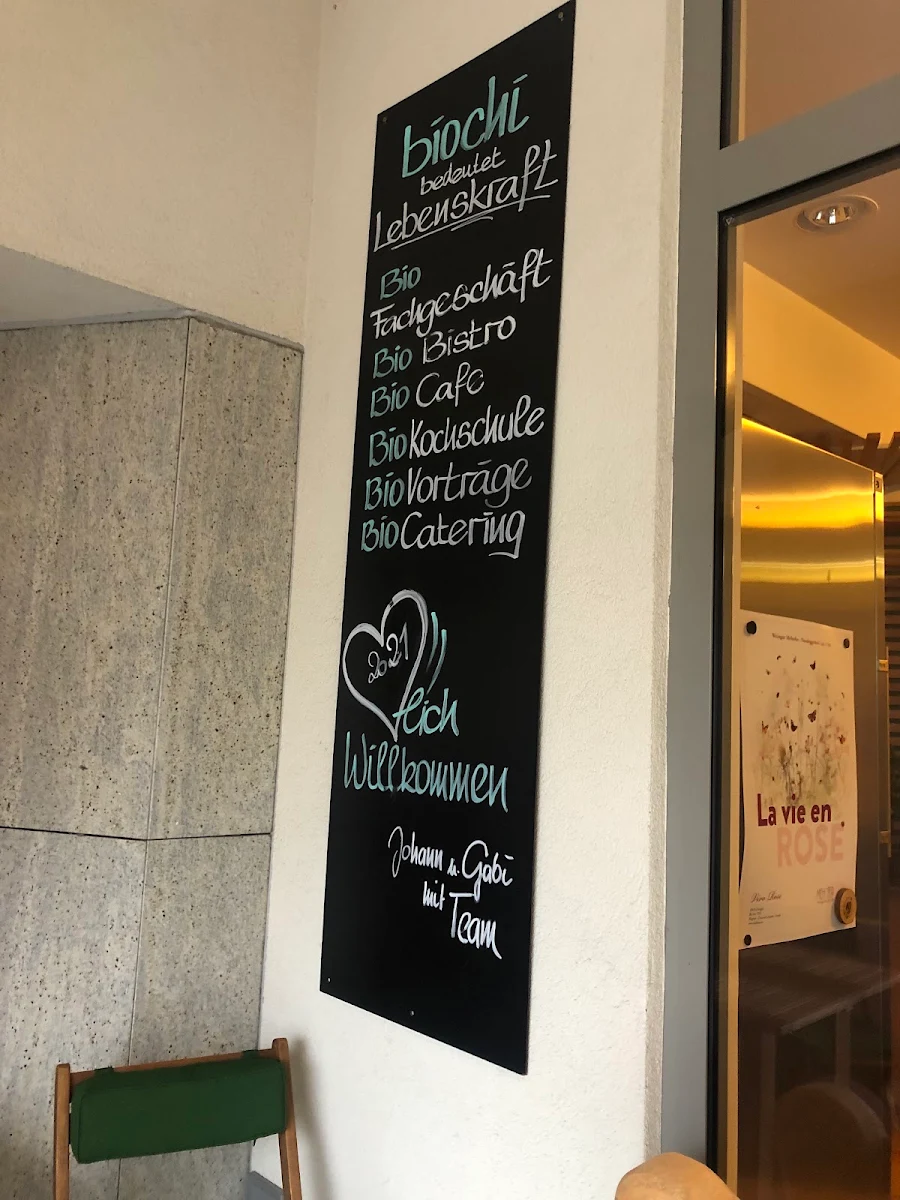 biochi
bedeutet
Lebenskraft
Bio
Fachgeschäft
Bio Bistro
Bio Cafe
Bio Kochschule
Bio Vorträge
Bio Catering
2021
lich
Willkommen
Johann u. Gabi
mit Team
La vie en
ROSÉ